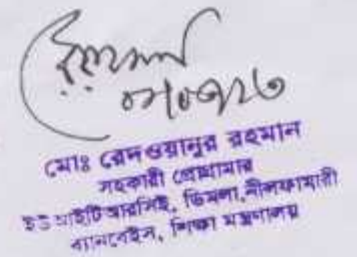 মোঃ রেদওয়ানুর রহমান
সহকারী প্রোগ্রামার
ইউআইটিআরসিই, ডিমলা, নীলফামারী
ব্যানবেইস, শিক্ষা মন্ত্রণালয়